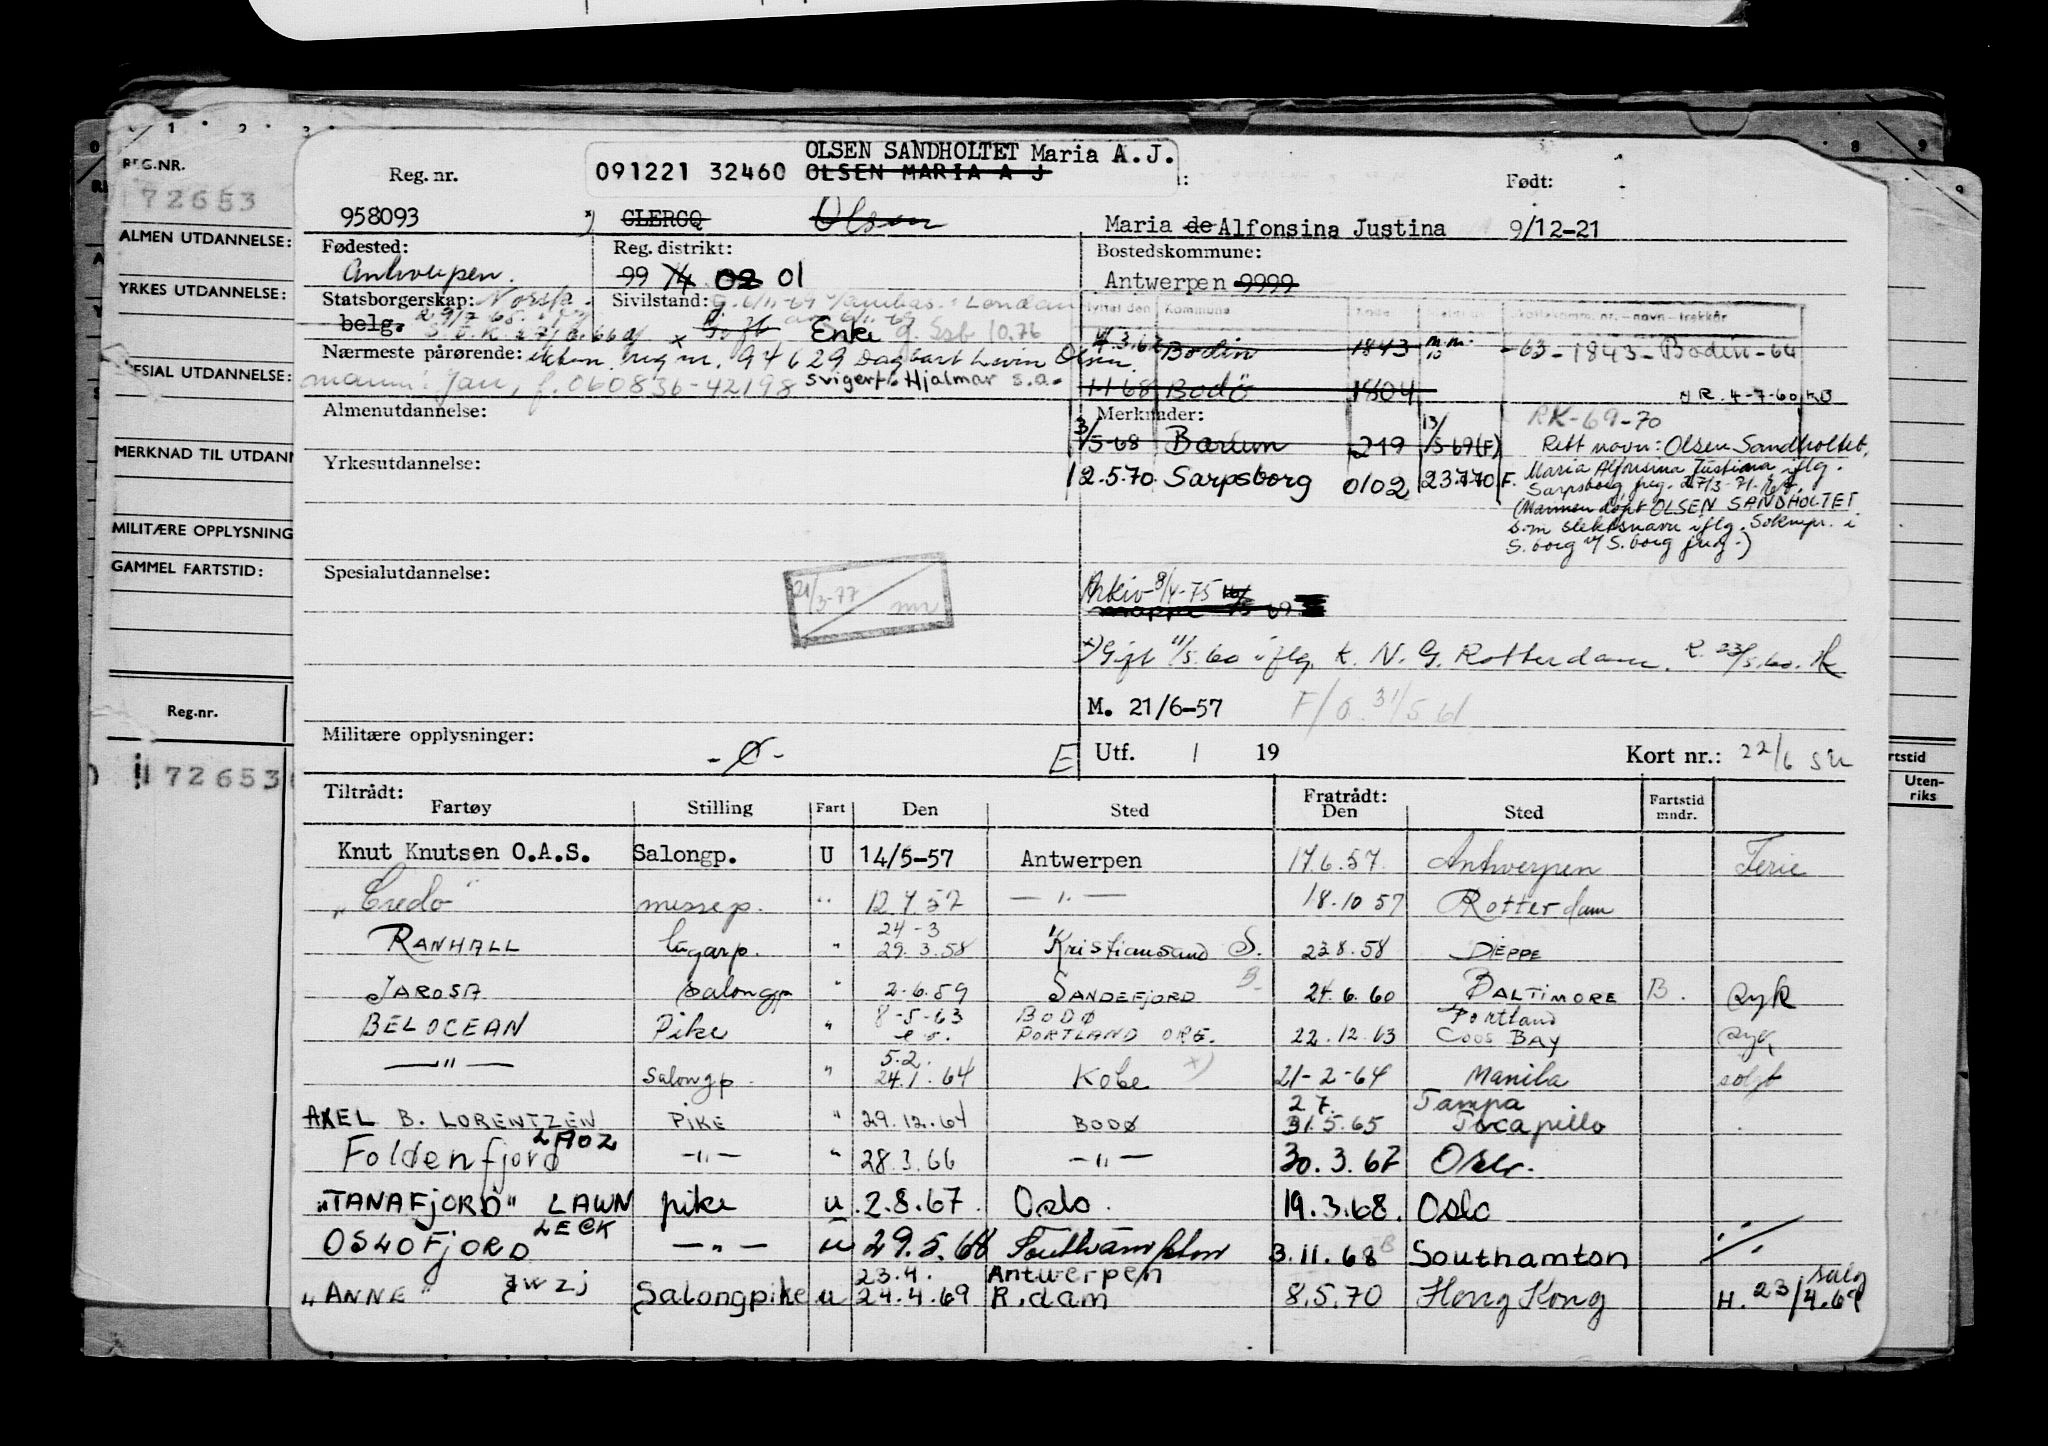 REG.NR.
172653
ALMEN UTDANNELSE:
YRKES UTDANNELSE:
SPESIAL UTDANNELSE:
MERKNAD TIL UTDANN
MILITÆRE OPPLYSNING
GAMMEL FARTSTID:
Reg.nr.
172653
OLSEN SANDHOLTET Maria A.J.
Reg. nr. 091221 32460 OLSEN MARIA A J Født:
958093 CLERCQ Olsen Maria de Alfonsina Justina 9/12-21
Fødested: Reg. distrikt: Bostedskommune:
Antwerpen. 99 14 02 01 Antwerpen 9999
Statsborgerskap: Norsk. Sivilstand:
belg. Enke
Nærmeste pårørende: Dagbart Olsen
mann: Jan, f. 060836-42198 svigerf. Hjalmar s.a.
Bodin 1843 -63-1843-Bodin-64
1-1 68 Bodø 1804 NR. 4-7-60 KB
Almenutdannelse: Merknader: RK-69-70
3/5-68 Bærum 219 13/5-69(F) Rett navn: Olsen Sandholtet,
Yrkesutdannelse: 12.5.70 Sarpsborg 0102 F. Maria Alfonsina Justina iflg.
Sarpsborg freg.
(Mannen døpt OLSEN SANDHOLTET
som slektsnavn iflg. Soknepr. i
S.borg v/ S.borg freg.)
Spesialutdannelse: 21/3-77 Arkiv 8/4-75
x) Gift 11/5.60 iflg. K. N. G. Rotterdam. R. 23/5.60. H
M. 21/6-57 F/O 31/5 61
Militære opplysninger: -Ø- E Utf. 1 19 Kort nr.: 22/6 SU
Tiltrådt: Fratrådt: Fartstid
Fartøy Stilling Fart Den Sted Den Sted mndr.
Knut Knutsen O.A.S. Salongp. U 14/5-57 Antwerpen 17.6.57. Antwerpen Ferie
"Credo" messep. " 12.7.57 — " — 18.10 57 Rotterdam
24-3
RANHALL lugarp. " 29.3.58 Kristiansand S. 23 8.58 DIEPPE
JAROSA Salongp " 2-6.59 SANDEFJORD 24.6.60 BALTIMORE B. syk
8-5-63 BODØ Portland
BELOCEAN Pike " PORTLAND ORE. 22.12.63 COOS BAY syk
5.2.
— " — Salongp. " 24.1.64 Kobe x) 21-2-64 Manila solgt
27. Tampa
AXEL B. LORENTZEN PIKE " 29.12.64 BODØ 31.5.65 Tocapillo
Foldenfjord LAOZ — " — " 28.3.66 — " — 30.3.67 Oslo.
"TANAFJORD" LAWN pike u 2.8.67. Oslo. 19.3.68. Oslo
OSLOFJORD LECK — " — u 29.5.68 Southampton 3.11.68 Southamton
23.4. Antwerpen
"ANNE" JWZJ Salongpike u 24.4.69 R.dam 8.5.70 Hong Kong H. 23/4.69 salg
rtstid
Uten-
riks